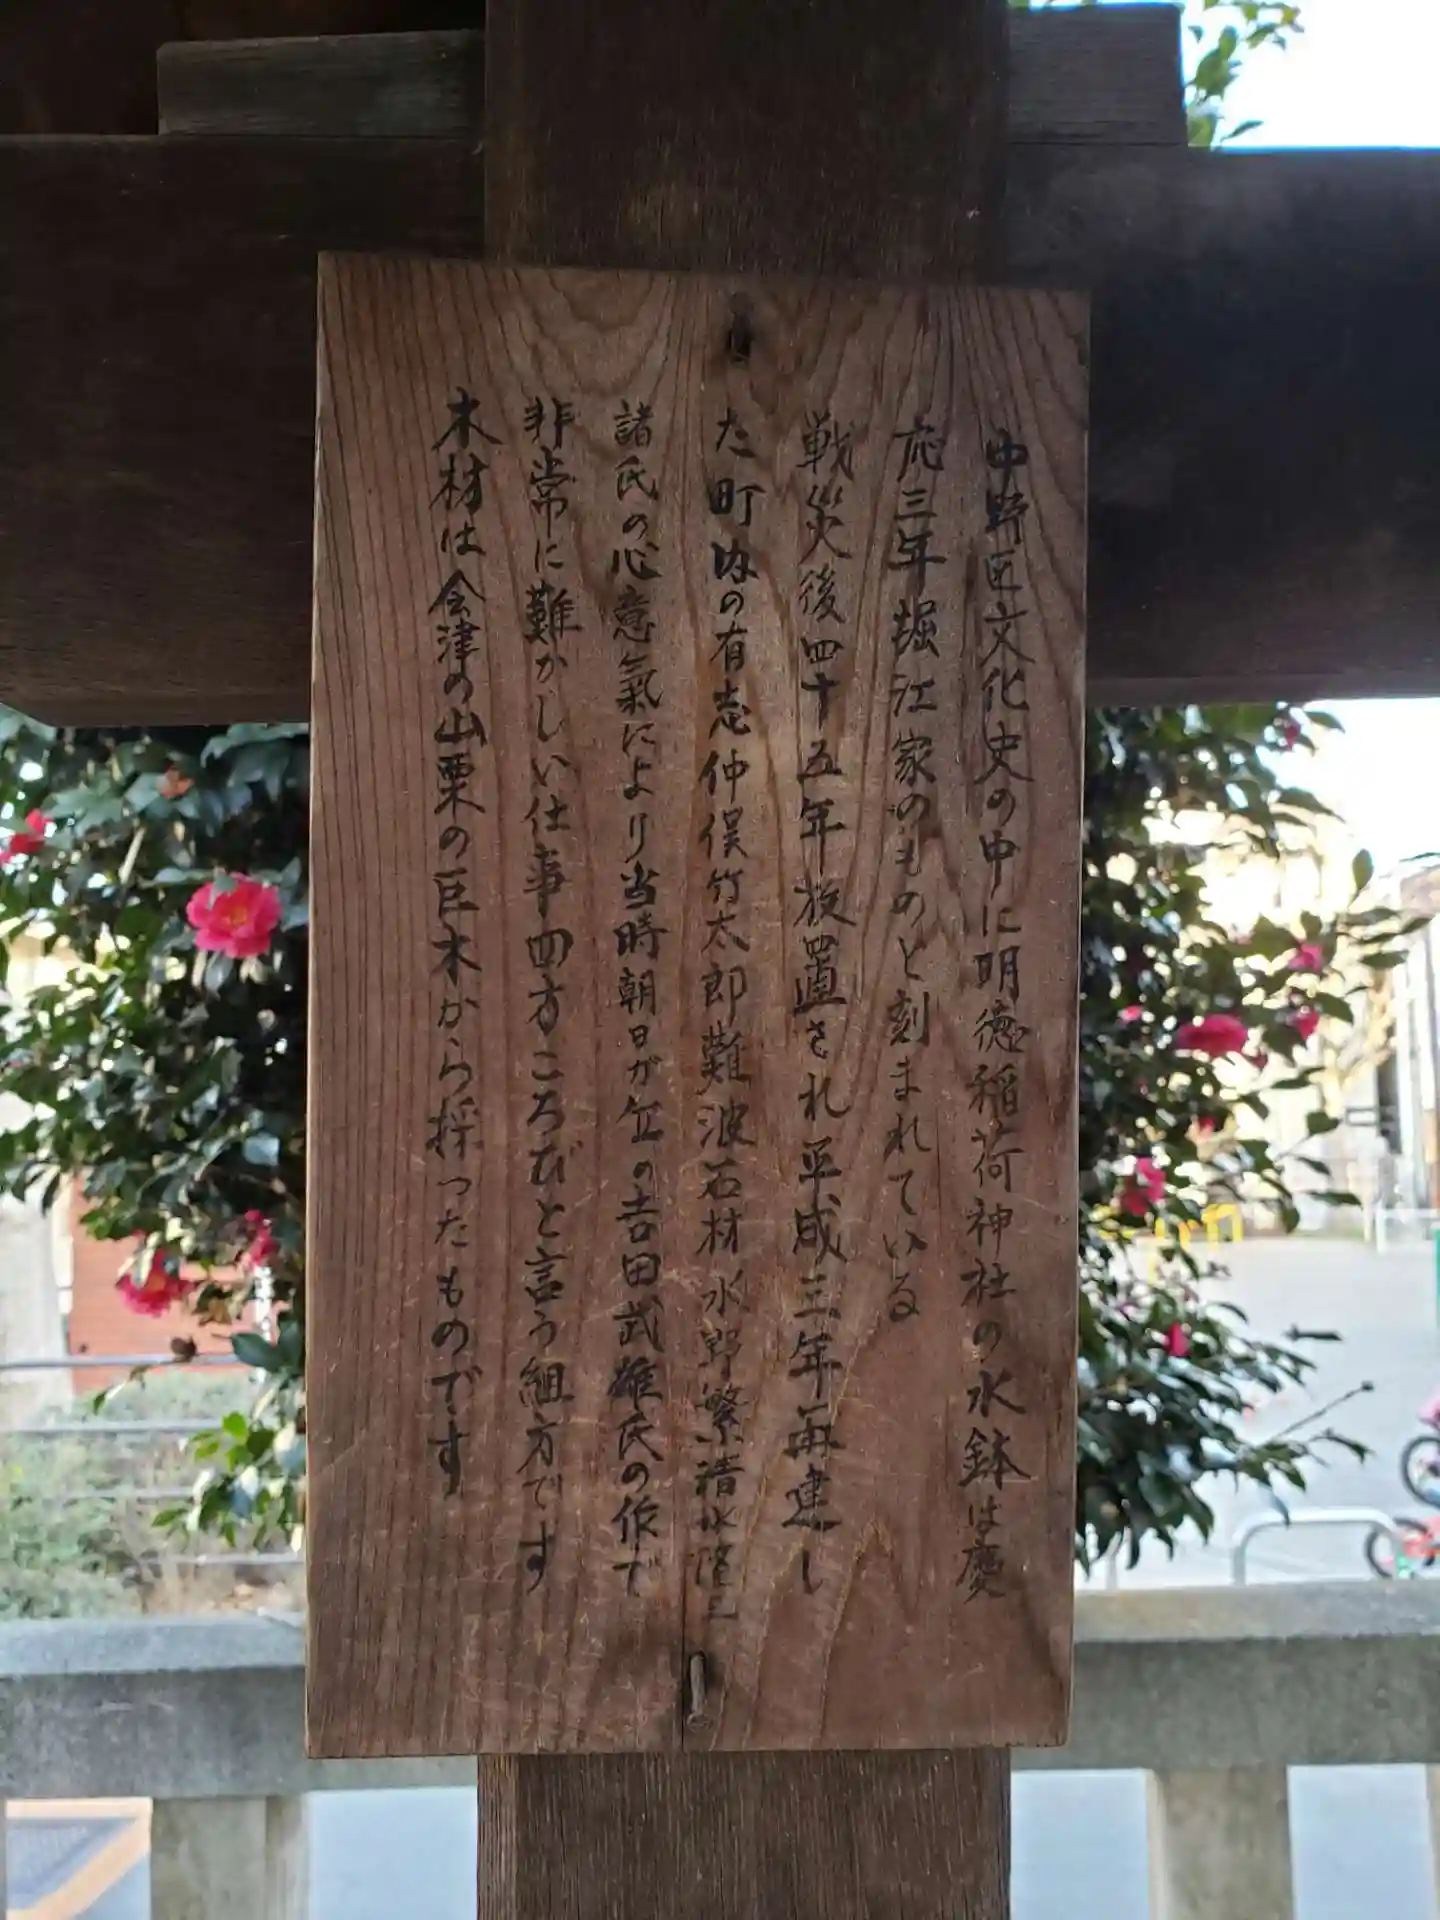 中野区文化史の中に明徳稲荷神社の水鉢は慶
応三年堀江家のものと刻まれている
戦災後四十五年放置され平成三年再建し
た町内の有志仲俣竹太郎難波石材水野繁清水隆三
諸氏の心意氣により当時朝日が丘の吉田武雄氏の作で
非常に難かしい仕事四方ころびと言う組方です
木材は会津の山栗の巨木から採ったものです